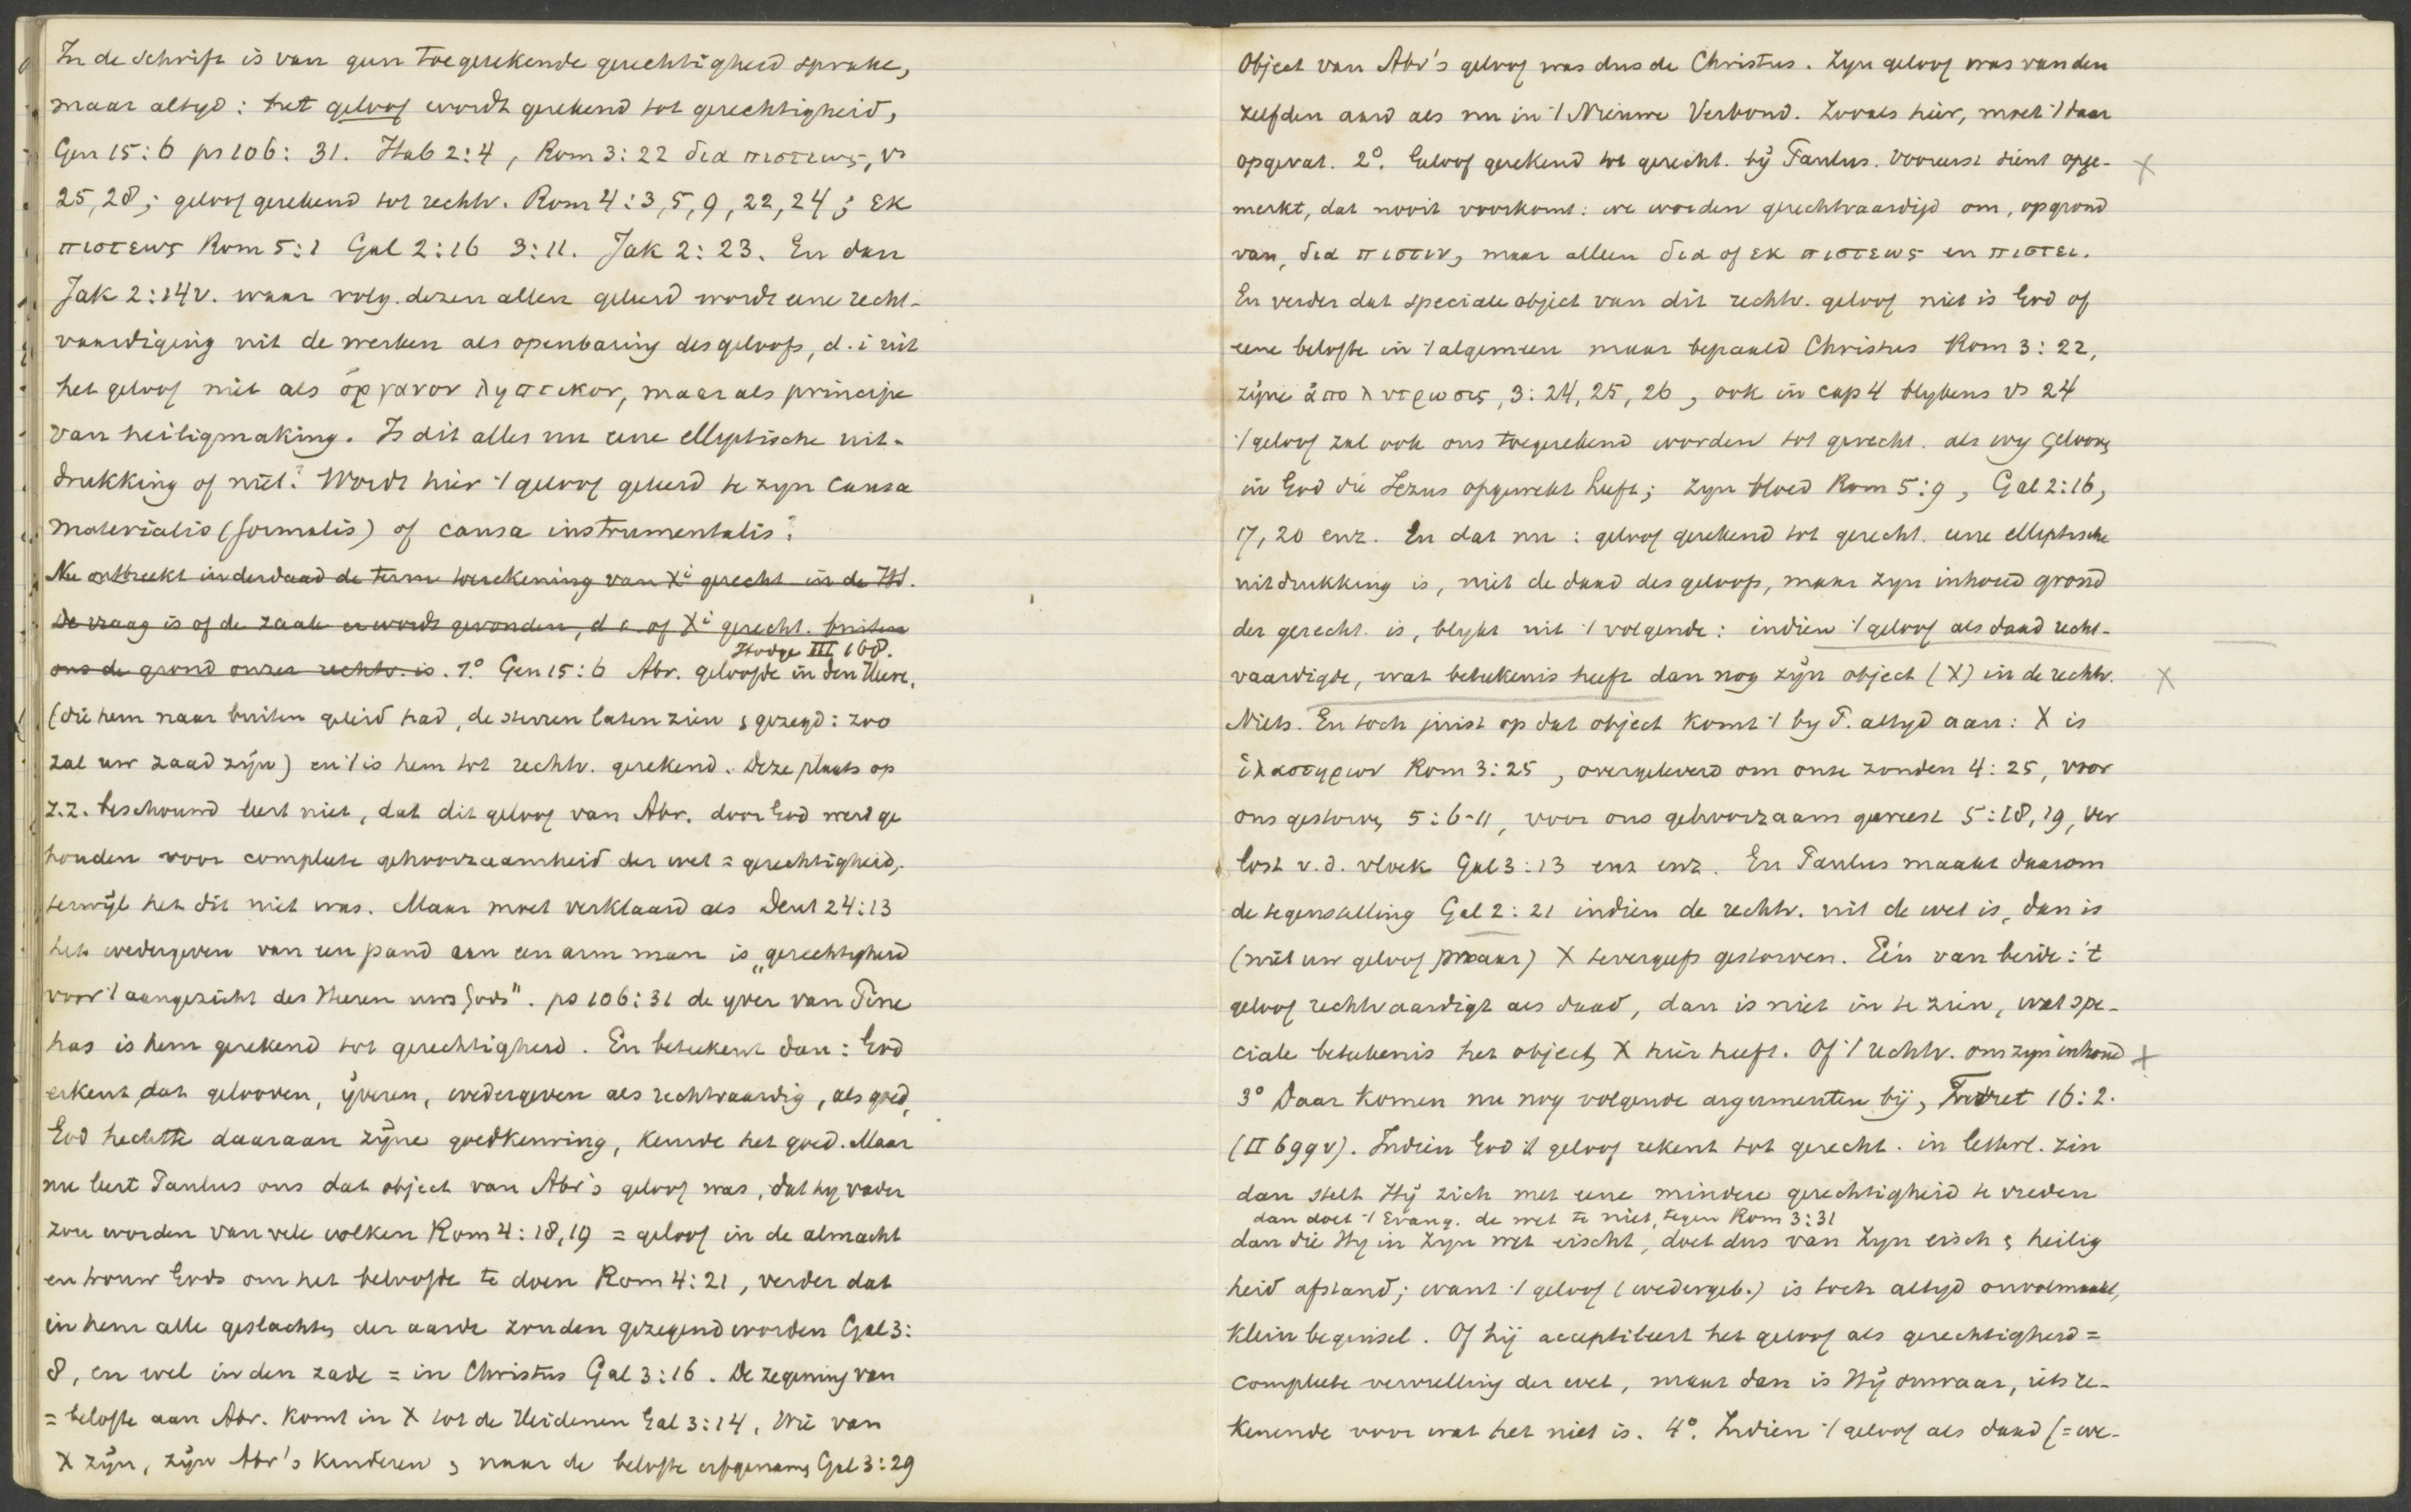 In de Schrift is van geen toegerekende gerechtigheid sprake,
maar altyd : het geloof wordt gerekend tot gerechtigheid,
Gen 15:6 ps 106:31. Hab 2:4, Rom 3:22 δια πιστεως, vs
25, 28; geloof gerekend tot rechtv. Rom 4:3, 5, 9, 22, 24; εκ
πιστεως Rom 5:1 Gal 2:16 3:11. Jak 2:23. En dan
Jak 2:14v. waar volg. dezen allen geleerd wordt eene recht-
vaardiging uit de werken als openbaring des geloofs, d. i uit
het geloof niet als ὀργανον ληπτικον, maar als principe
van heiligmaking. Is dit alles nu eene elliptische uit-
drukking of niet? Wordt hier 't geloof geleerd te zyn causa
materialis (formalis) of causa instrumentalis?
Nu ontbreekt inderdaad de term toerekening van Xi gerecht in de HS.
De vraag is of de zaak er wordt gevonden, d i. of Xi gerecht. buiten
Hodge III 168.
ons de grond onzer rechtv. is. 1.° Gen 15:6 Abr. geloofde in den Heere,
(die hem naar buiten geleid had, de sterren laten zien & gezegd: zoo
zal uw zaad zijn) en 't is hem tot rechtv. gerekend. Deze plaats op
z.z. beschouwd leert niet, dat dit geloof van Abr. door God werd ge
houden voor complete gehoorzaamheid der wet = gerechtigheid,
terwijl het dit niet was. Maar moet verklaard als Deut 24:13
het wedergeven van een pand aan een arm man is „gerechtigheid
voor 't aangezicht des Heeren uws Gods". ps 106:31 de yver van Pine
has is hem gerekend tot gerechtigheid. En beteekent dan: God
erkent dat gelooven, ijveren, wedergeven als rechtvaardig, als goed,
God hechtte daaraan zijne goedkeuring, keurde het goed. Maar
nu leert Paulus ons dat object van Abr's geloof was, dat hy vader
zou worden van vele volken Rom 4:18, 19 = geloof in de almacht
en trouw Gods om het beloofde te doen Rom 4:21, verder dat
in hem alle geslachten der aarde zouden gezegend worden Gal 3:
8, en wel in den zade = in Christus Gal 3:16. De zegening van
= belofte aan Abr. komt in X tot de Heidenen Gal 3:14. Wie van
X zijn, zijn Abr's kinderen & naar de belofte erfgenamen Gal 3:29
Object van Abr's geloof was dus de Christus. Zyn geloof was van den
zelfden aard als nu in 't Nieuwe Verbond. Zooals hier, moet 't daar
opgevat. 2° Geloof gerekend tot gerecht. bij Paulus. Vooreerst dient opge-
merkt, dat nooit voorkomt: we worden gerechtvaardigd om, op grond
van, δια πιστιν, maar alleen δια of εκ πιστεως en πιστει.
En verder dat speciale object van dit rechtv. geloof niet is God of
eene belofte in 't algemeen maar bepaald Christus Rom 3:22,
zijne ἀπολυτρωσις, 3:24, 25, 26, ook in cap 4 blykens vs 24
't geloof zal ook ons toegerekend worden tot gerecht. als wy gelooven
in God die Jezus opgewekt heeft; zyn bloed Rom 5:9, Gal 2:16,
17, 20 enz. En dat nu : geloof gerekend tot gerecht. eene elliptische
uitdrukking is, niet de daad des geloofs, maar zyn inhoud grond
der gerecht. is, blykt uit 't volgende : indien 't geloof als daad recht-
vaardigde, wat beteekenis heeft dan nog zijn object (X) in de rechtv.
Niets. En toch juist op dat object komt 't by P. altyd aan: X is
ἱλαστηριον Rom 3:25, overgeleverd om onze zonden 4:25, voor
ons gestorven 5:6-11, voor ons gehoorzaam geweest 5:18, 19, ver
lost v. d. vloek Gal 3:13 enz enz. En Paulus maakt daarom
de tegenstelling Gal 2:21 indien de rechtv. uit de wet is, dan is
(niet uw geloof maar) X tevergeefs gestorven. Eén van beide: 't
geloof rechtvaardigt als daad, dan is niet in te zien, wat spe-
ciale beteekenis het object X hier heeft. Of 't rechtv. om zyn inhoud
3° Daar komen nu nog volgende argumenten bij, Turret 16:2.
(II 699 v). Indien God 't geloof rekent tot gerecht. in letterl. zin
dan stelt Hij zich met eene mindere gerechtigheid te vreden
dan doet 't Evang. de wet te niet, tegen Rom 3:31
dan die Hy in Zyn wet eischt, doet dus van Zyn eisch & heilig
heid afstand; want 't geloof (wedergeb.) is toch altyd onvolmaakt,
klein beginsel. Of hij accepteleert het geloof als gerechtigheid =
complete vervulling der wet, maar dan is Hij onwaar, iets re-
kenende voor wat het niet is. 4°. Indien 't geloof als daad (= we-